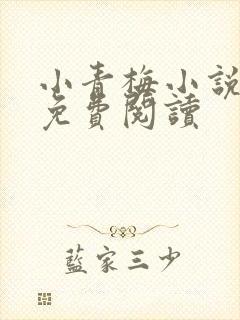 小青梅小說
免費閱讀
藍家三少